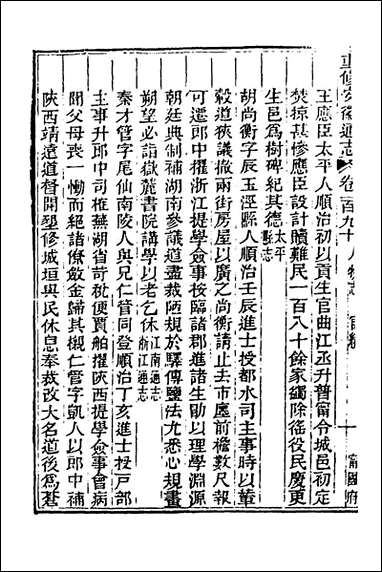 重修安徽通志 卷一百九十 人物志 宦績 甯國府
王應臣太平人順治初以貢生官曲江丞升普甯令城邑初定
焚掠甚慘應臣設計贖難民一百八十餘家蠲除徭役民慶更
生邑爲樹碑紀其德太平縣志
胡尚衡字辰玉涇縣人順治壬辰進士授都水司主事時以輦
轂道狹議撤兩街房屋以廣之尚衡請止去市廛前檐數尺報
可遷郎中擢浙江提學僉事按臨諸郡進諸生勖以理學淵源
朝廷典制補湖南參議道盡裁陋規於驛傳鹽法尤悉心規畫
朔望必詣嶽麓書院講學以老乞休江南通志浙江通志
秦才管字尾仙南陵人與兄仁管同登順治丁亥進士授戸部
主事升郎中司榷蕪湖省苛枇便賈舶擢陝西提學僉事會病
聞父母喪一慟而絕諸僚斂金歸其櫬仁管字凱人以郎中補
陝西靖遠道督開墾修城垣與民休息奉裁改大名道後爲惹